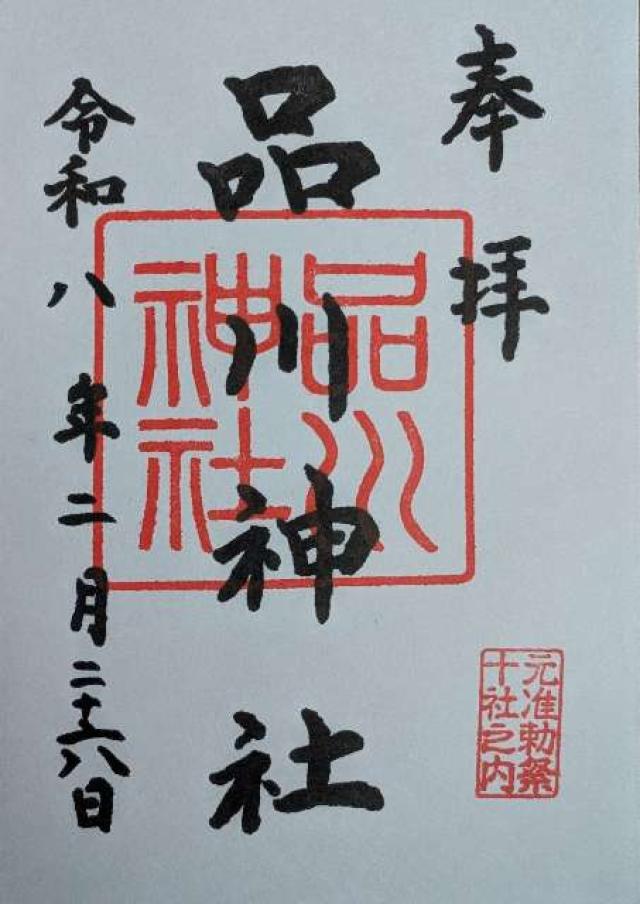 奉拝
品川神社
品川
神社
令和八年二月二十六日
元准勅祭
十社之内